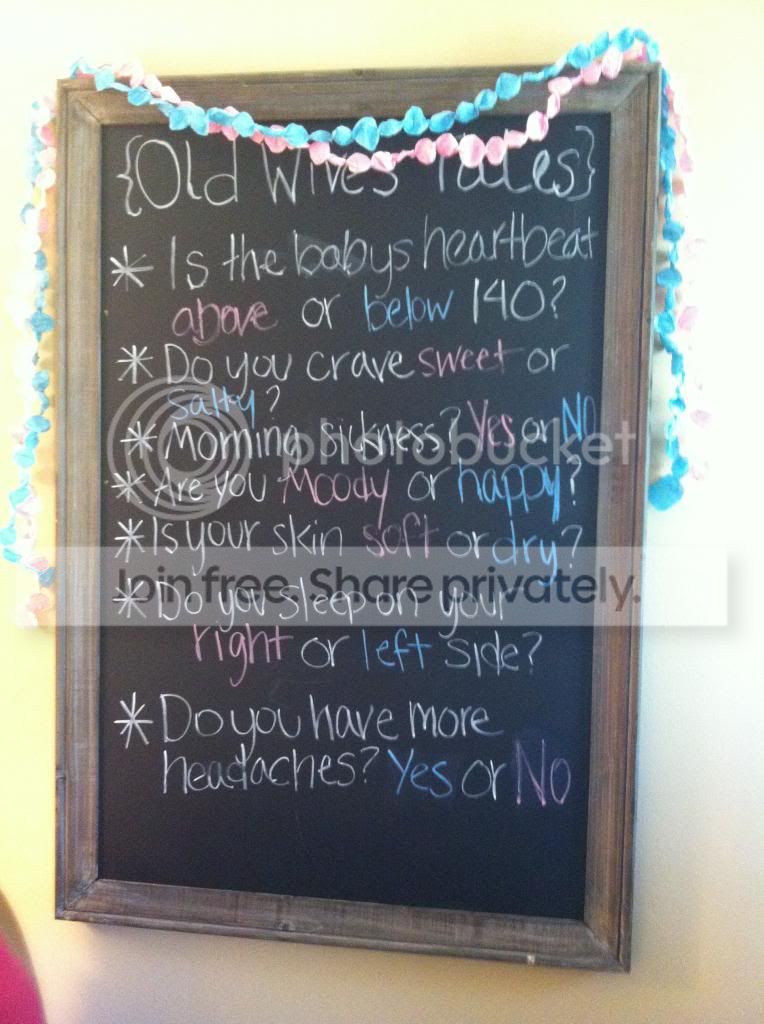 {Old Wives Tales}
* Is the babys heartbeat
above or below 140?
* Do you crave sweet or
salty?
* Morning sickness? Yes or NO
* Are you Moody or happy?
* Is your skin soft or dry?
* Do you sleep on your
right or left side?
* Do you have more
headaches? Yes or No
photobucket
Join free. Share privately.